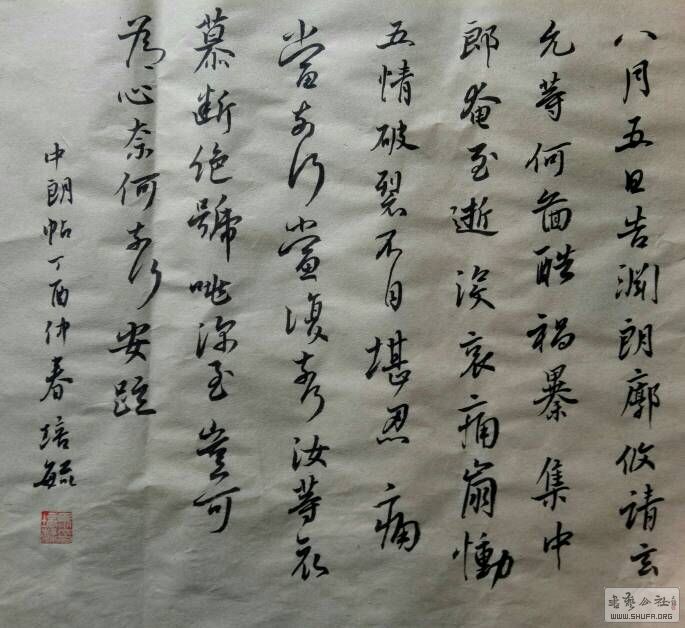 八月五日告淵朗廓攸請玄
允等何啚酷禍暴集中
郎奄至逝没哀痛崩慟
五情破裂不自堪忍痛
當奈何當復奈何汝等哀
慕斷絶號咷深至豈可
為心奈何奈何安疏
中朗帖丁酉仲春培毓
书艺公社
WWW.SHUFA.ORG